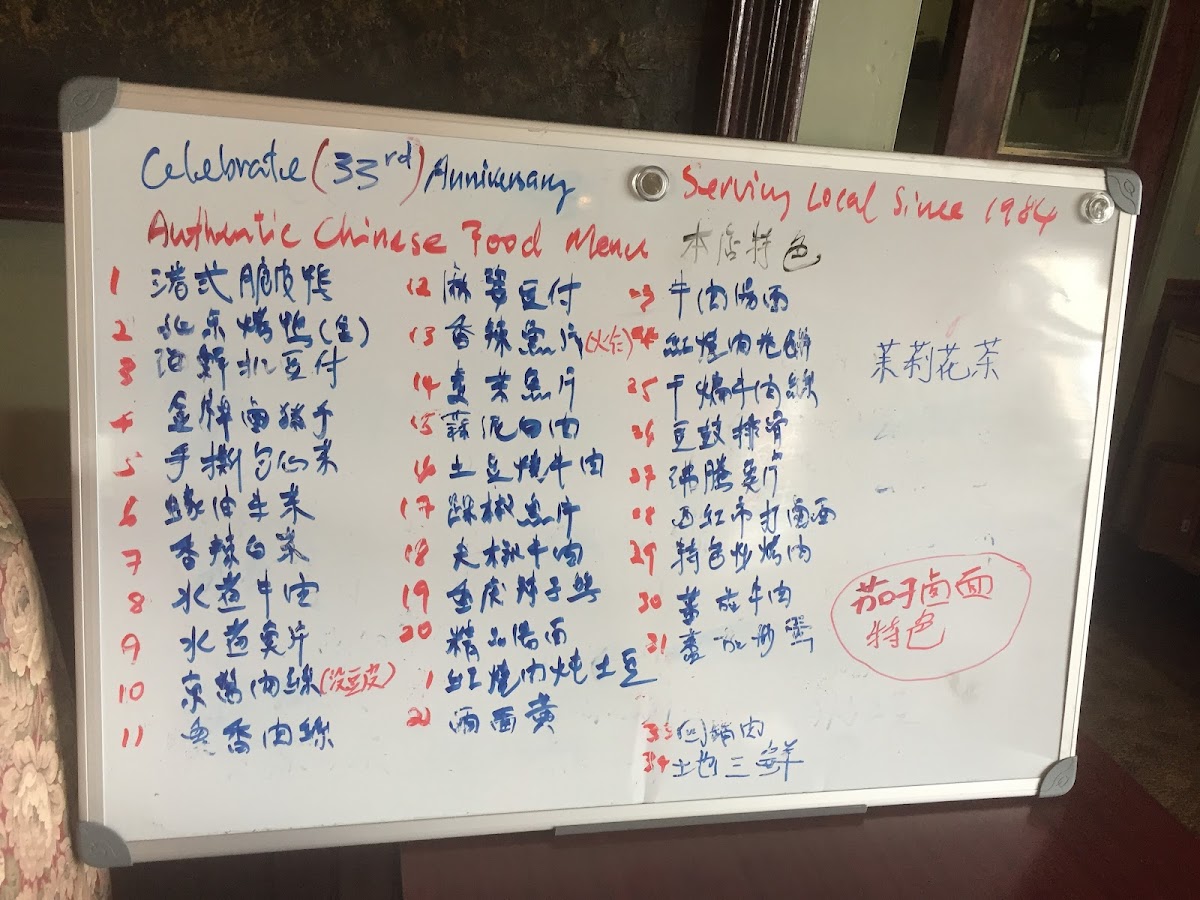 Celebrate (33rd) Anniversary
Serving Local Since 1984
Authentic Chinese Food Menu 本店特色
1 港式脆皮鴨
2 北京烤鸭(隻)
3 海鮮扒豆付
4 金牌卤豬手
5 手撕包心菜
6 蠔油生菜
7 香辣白菜
8 水煮牛肉
9 水煮魚片
10 京醬肉絲(没豆皮)
11 魚香肉絲
12 麻婆豆付
13 香辣魚片
14 魚片
15 蒜泥白肉
16 土豆燒牛肉
17 跺椒魚片
18 尖椒牛肉
19 重庆辣子
20 精品湯面
1 红燒肉炖土豆
22 两面黄
23 牛肉湯面
红燒肉
25 干煸牛肉絲
26 豆豉排骨
27 沸腾魚片
28 西红市打卤面
29 特色炒烤肉
30 牛肉
31 炒蛋
33 回鍋肉
34 土地三鲜
茉莉花茶
茄子卤面
特色